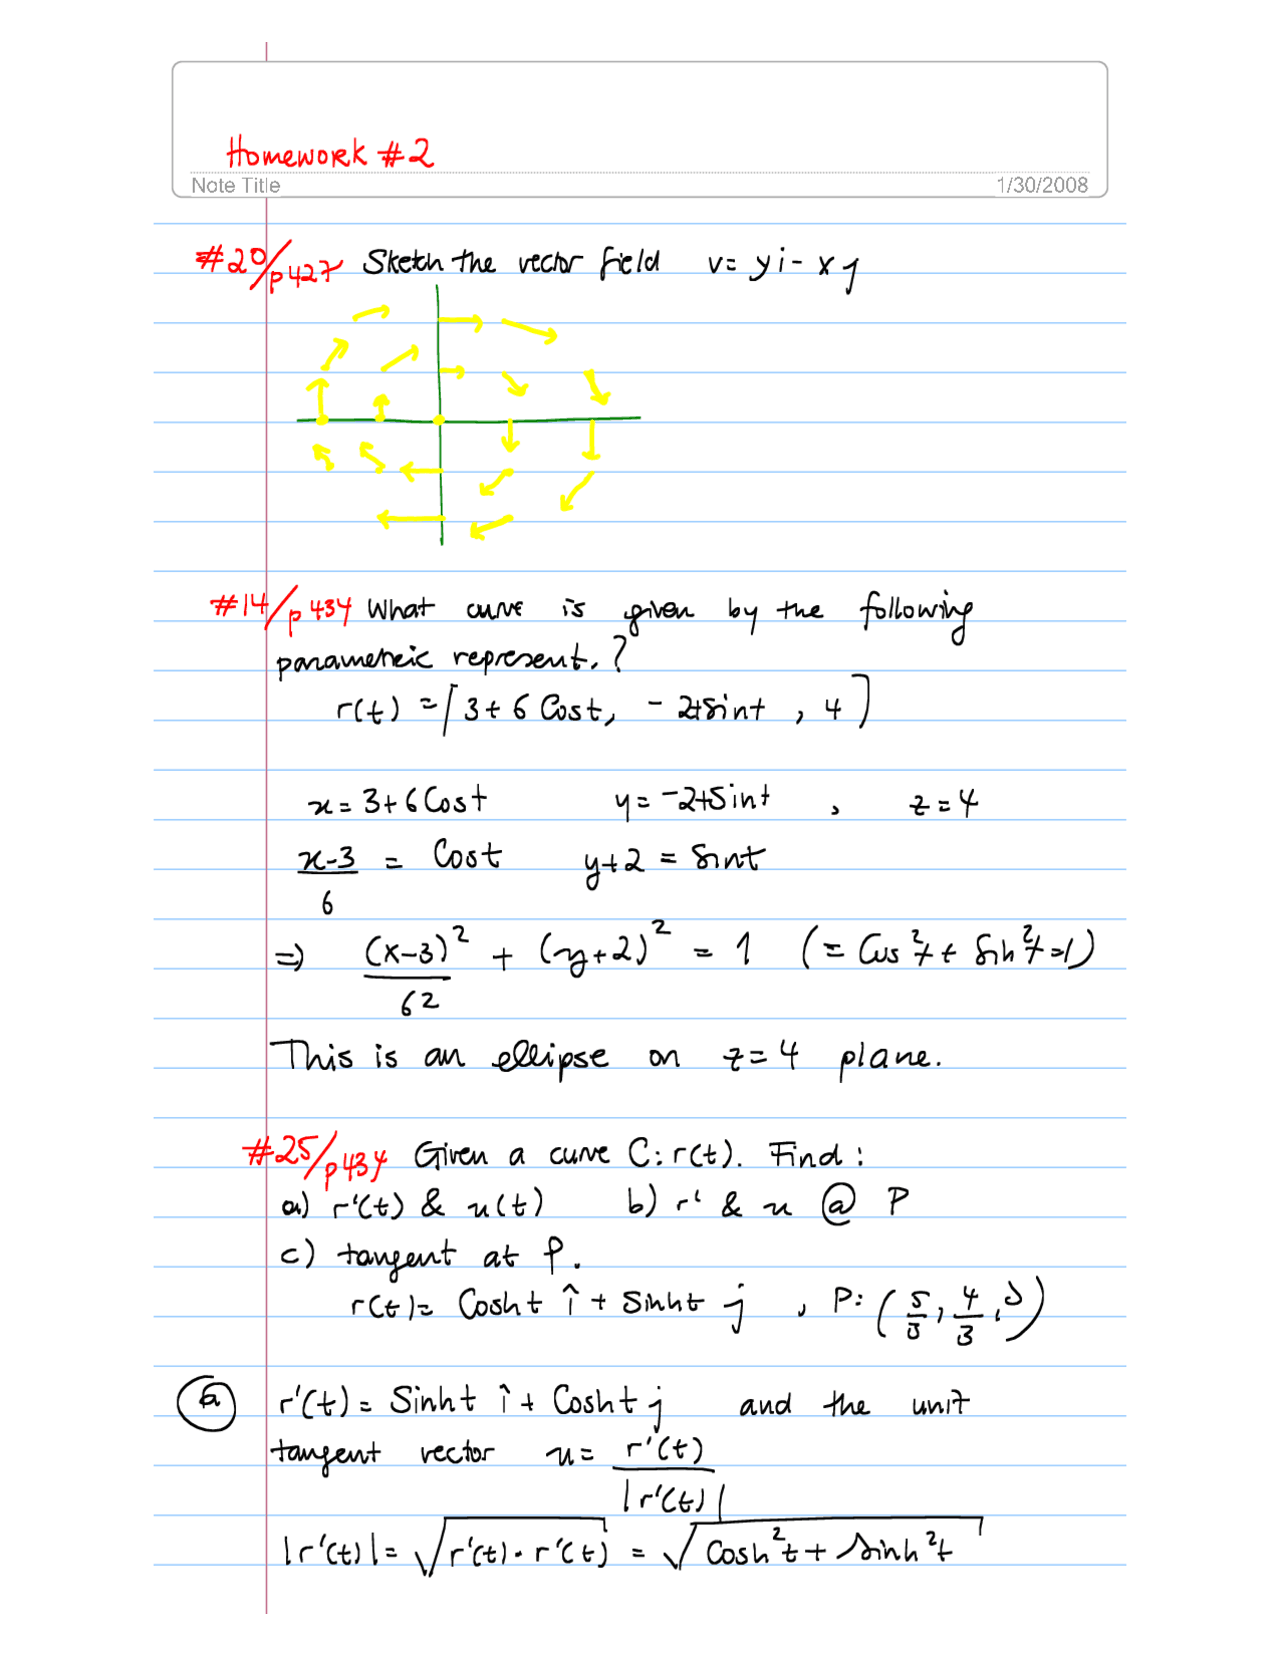 Homework #2
Note Title 1/30/2008
#20/p427 Sketch the vector field v= yi- xj
#14/p434 What curve is given by the following
parametric represent.?
r(t) = [3+6 Cost, -2+Sint, 4]
x=3+6Cost y=-2+Sint , z=4
x-3/6 = Cost y+2 = Sint
=> (x-3)²/6² + (y+2)² = 1 (= Cos²t + Sin²t=1)
This is an ellipse on z=4 plane.
#25/p434 Given a curve C: r(t). Find:
a) r'(t) & u(t) b) r' & u @ P
c) tangent at P.
r(t)= Cosht î + Sinht j , P: (5/3, 4/3, 0)
(a) r'(t)= Sinht î + Cosht j and the unit
tangent vector u= r'(t)/|r'(t)|
|r'(t)|= √r'(t)·r'(t) = √Cosh²t + Sinh²t